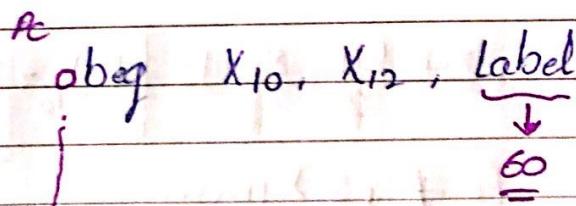 PC
0 beq X10, X12, Label
60